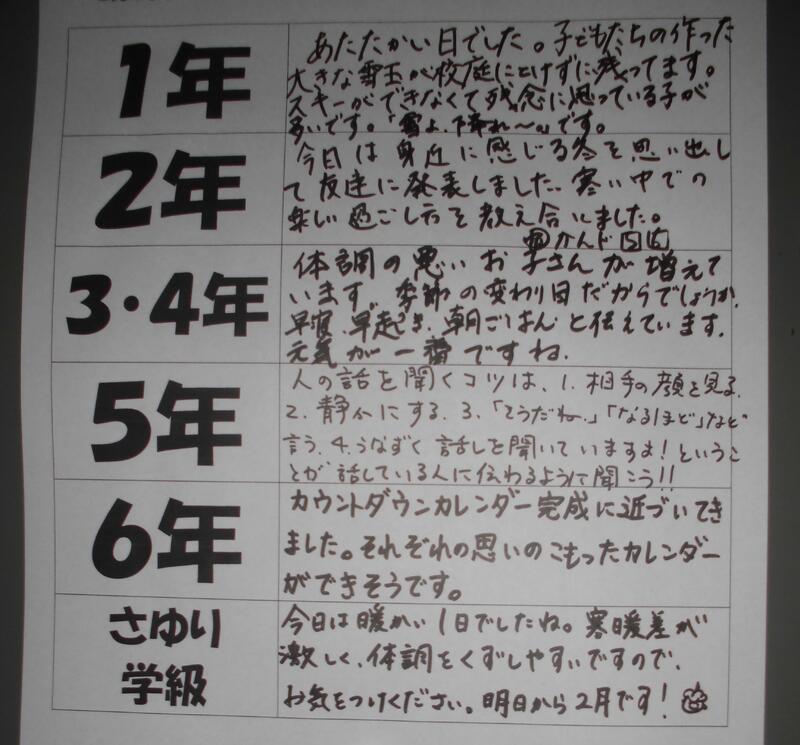 1年
あたたかい日でした。子どもたちの作った
大きな雪玉が校庭にとけずに残ってます。
スキーができなくて残念に思っている子が
多いです。「雪よ、降れ〜。」です。
2年
今日は身近に感じる冬を思い出し
て友達に発表しました。寒い中での
楽しい過ごし方を教え合いました。
かんド
3・4年
体調の悪いお子さんが増えて
います。季節の変わり目だからでしょうか。
早寝、早起き、朝ごはんと伝えています。
元気が一番ですね。
5年
人の話を聞くコツは、1.相手の顔を見る。
2.静かにする。3.「そうだね。」「なるほど」など
言う。4.うなずく 話しを聞いていますよ!というこ
とが話している人に伝わるように聞こう!!
6年
カウントダウンカレンダー完成に近づいてき
ました。それぞれの思いのこもったカレンダー
ができそうです。
さゆり
学級
今日は暖かい1日でしたね。寒暖差が
激しく、体調をくずしやすいですので、
お気をつけください。明日から2月です!